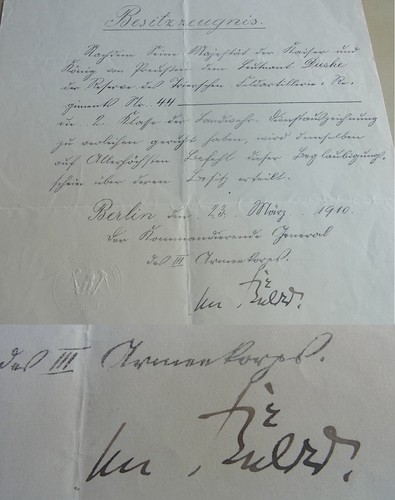 Besitzzeugnis.
Nachdem Seine Majestät der Kaiser und
König von Preußen dem Leutnant Duske
der Reserve des Trierschen Feldartillerie-Re-
giments Nr. 44
die 2. Klasse der Landwehr-Dienstauszeichnung
zu verleihen geruht haben, wird demselben
auf Allerhöchsten Befehl dieser Beglaubigungs-
schein über deren Besitz erteilt.
Berlin den 23. März 1910.
Der Kommandierende General
des III Armeekorps.
des III Armeekorps.